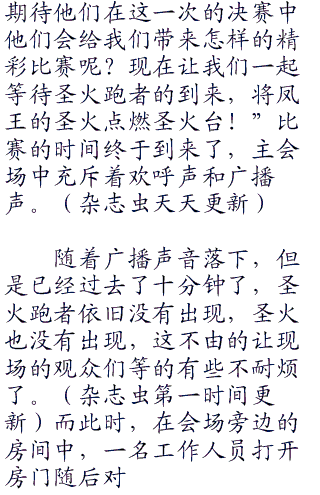 期待他们在这一次的决赛中
他们会给我们带来怎样的精
彩比赛呢？现在让我们一起
等待圣火跑者的到来，将凤
王的圣火点燃圣火台！”比
赛的时间终于到来了，主会
场中充斥着欢呼声和广播
声。（杂志虫天天更新）
随着广播声音落下，但
是已经过去了十分钟了，圣
火跑者依旧没有出现，圣火
也没有出现，这不由的让现
场的观众们等的有些不耐烦
了。（杂志虫第一时间更
新）而此时，在会场旁边的
房间中，一名工作人员打开
房门随后对